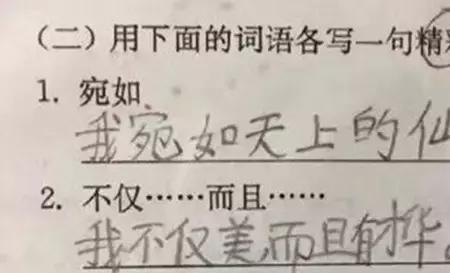 （二）用下面的词语各写一句精
1. 宛如
我宛如天上的仙
2. 不仅……而且……
我不仅美,而且有才华。